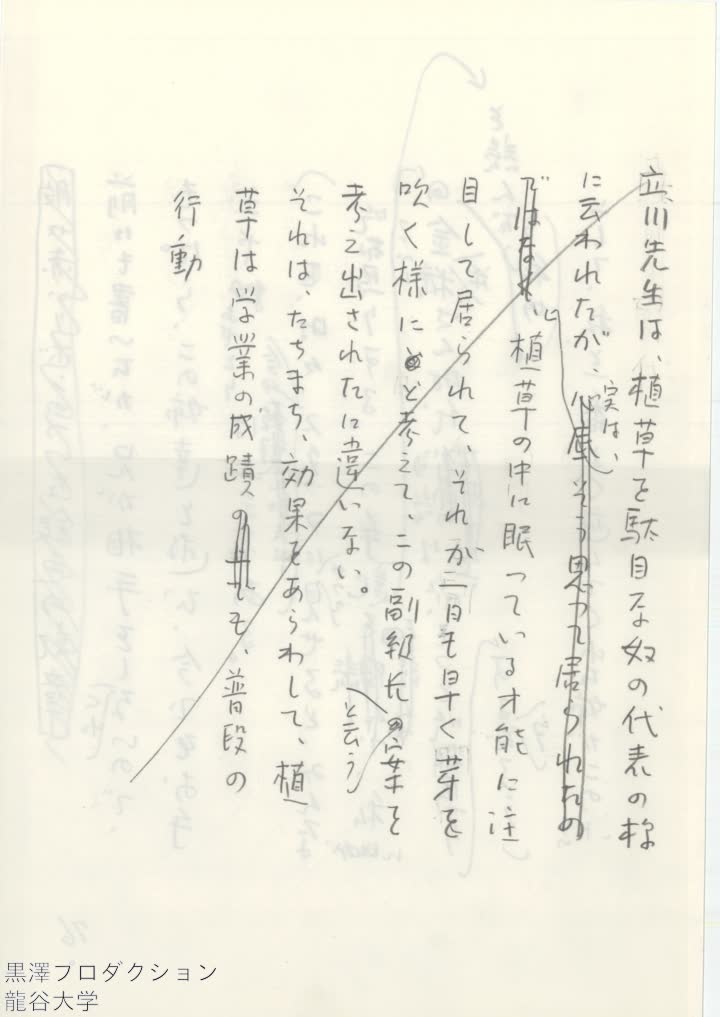 立川先生は、植草を駄目な奴の代表の様
に云われたが、心底そう思って居られたの
実は、
ではなく、植草の中に眠っている才能に注
目して居られて、それが一日も早く芽を
吹く様にと考えて、この副級長の案を
と云う
考え出されたに違いない。
それは、たちまち、効果をあらわして、植
草は学業の成蹟も、普段の
行動
黒澤プロダクション
龍谷大学